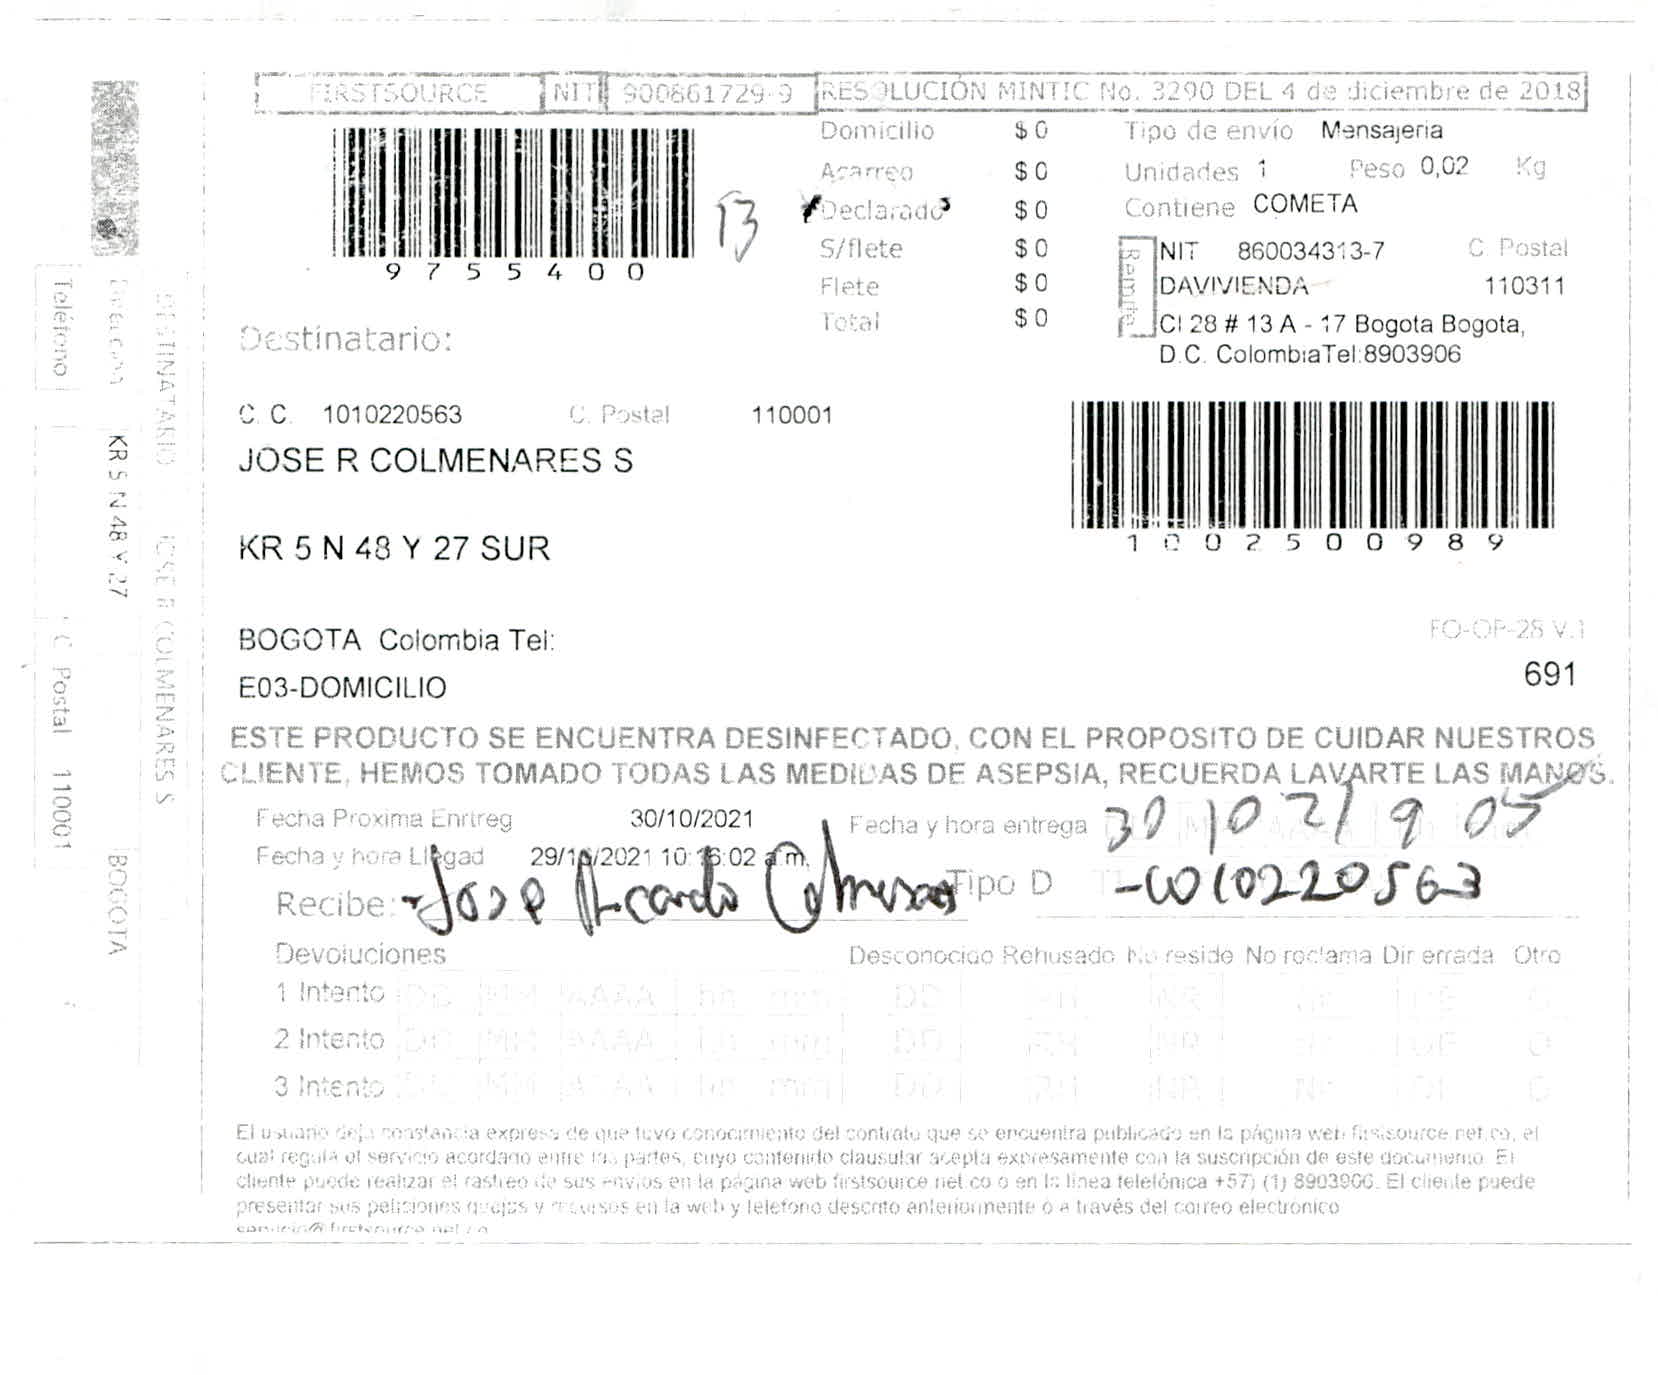 FIRSTSOURCE NIT 900861729-9 RESOLUCIÓN MINTIC No. 3290 DEL 4 de diciembre de 2018
9755400
13
Domicilio $ 0
Acarreo $ 0
Declarado $ 0
S/flete $ 0
Flete $ 0
Total $ 0
Tipo de envío Mensajeria
Unidades 1 Peso 0,02 Kg
Contiene COMETA
Remite
NIT 860034313-7 C. Postal
DAVIVIENDA 110311
Cl 28 # 13 A - 17 Bogota Bogota,
D.C. ColombiaTel:8903906
Destinatario:
C. C. 1010220563 C. Postal 110001
JOSE R COLMENARES S
KR 5 N 48 Y 27 SUR
1002500989
BOGOTA Colombia Tel:
E03-DOMICILIO
FO-OP-28 V.1
691
ESTE PRODUCTO SE ENCUENTRA DESINFECTADO, CON EL PROPOSITO DE CUIDAR NUESTROS
CLIENTE, HEMOS TOMADO TODAS LAS MEDIDAS DE ASEPSIA, RECUERDA LAVARTE LAS MANOS.
Fecha Proxima Enrtreg 30/10/2021 Fecha y hora entrega 30 10 21 9 05
Fecha y hora Llegad 29/10/2021 10:16:02 a.m.
Recibe: Jose Ricardo Colmenares Tipo D 1010220563
Devoluciones Desconocido Rehusado No reside No reclama Dir errada Otro
1 Intento DD MM AAAA hh mm DD RH NR Nr DE O
2 Intento DD MM AAAA hh mm DD RH NR Nr DE O
3 Intento DD MM AAAA hh mm DD RH NR Nr DE O
El usuario deja constancia expresa de que tuvo conocimiento del contrato que se encuentra publicado en la página web firstsource.net.co, el
cual regula el servicio acordado entre las partes, cuyo contenido clausular acepta expresamente con la suscripción de este documento. El
cliente puede realizar el rastreo de sus envios en la página web firstsource.net.co o en la línea telefónica +57) (1) 8903906. El cliente puede
presentar sus peliciones quejas y recursos en la web y telefono descrito anteriormente o a través del correo electrónico
servicio@firstsource.net.co
DESTINATARIO JOSE R COLMENARES S
Direccion KR 5 N 48 Y 27 BOGOTA
Teléfono C. Postal 110001